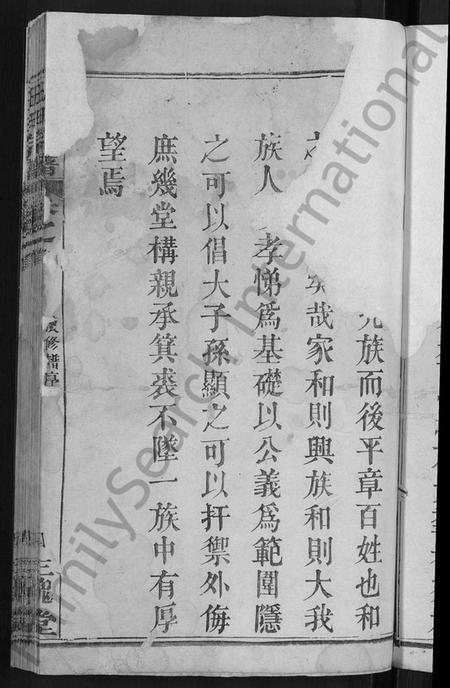 族而後平章百姓也和
哉家和則興族和則大我
族人 孝悌爲基礎以公義爲範圍隱
之可以倡大子孫顯之可以扞禦外侮
庶幾堂構親承箕裘不墜一族中有厚
望焉
譜
修譜序
三槐堂
FamilySearch International